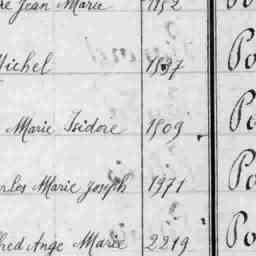 re Jean Marie 1152 Po
Michel 1897 Po
Marie Isidore 1809 Po
rles Marie Joseph 1971 Po
fred Ange Marie 2219 Po